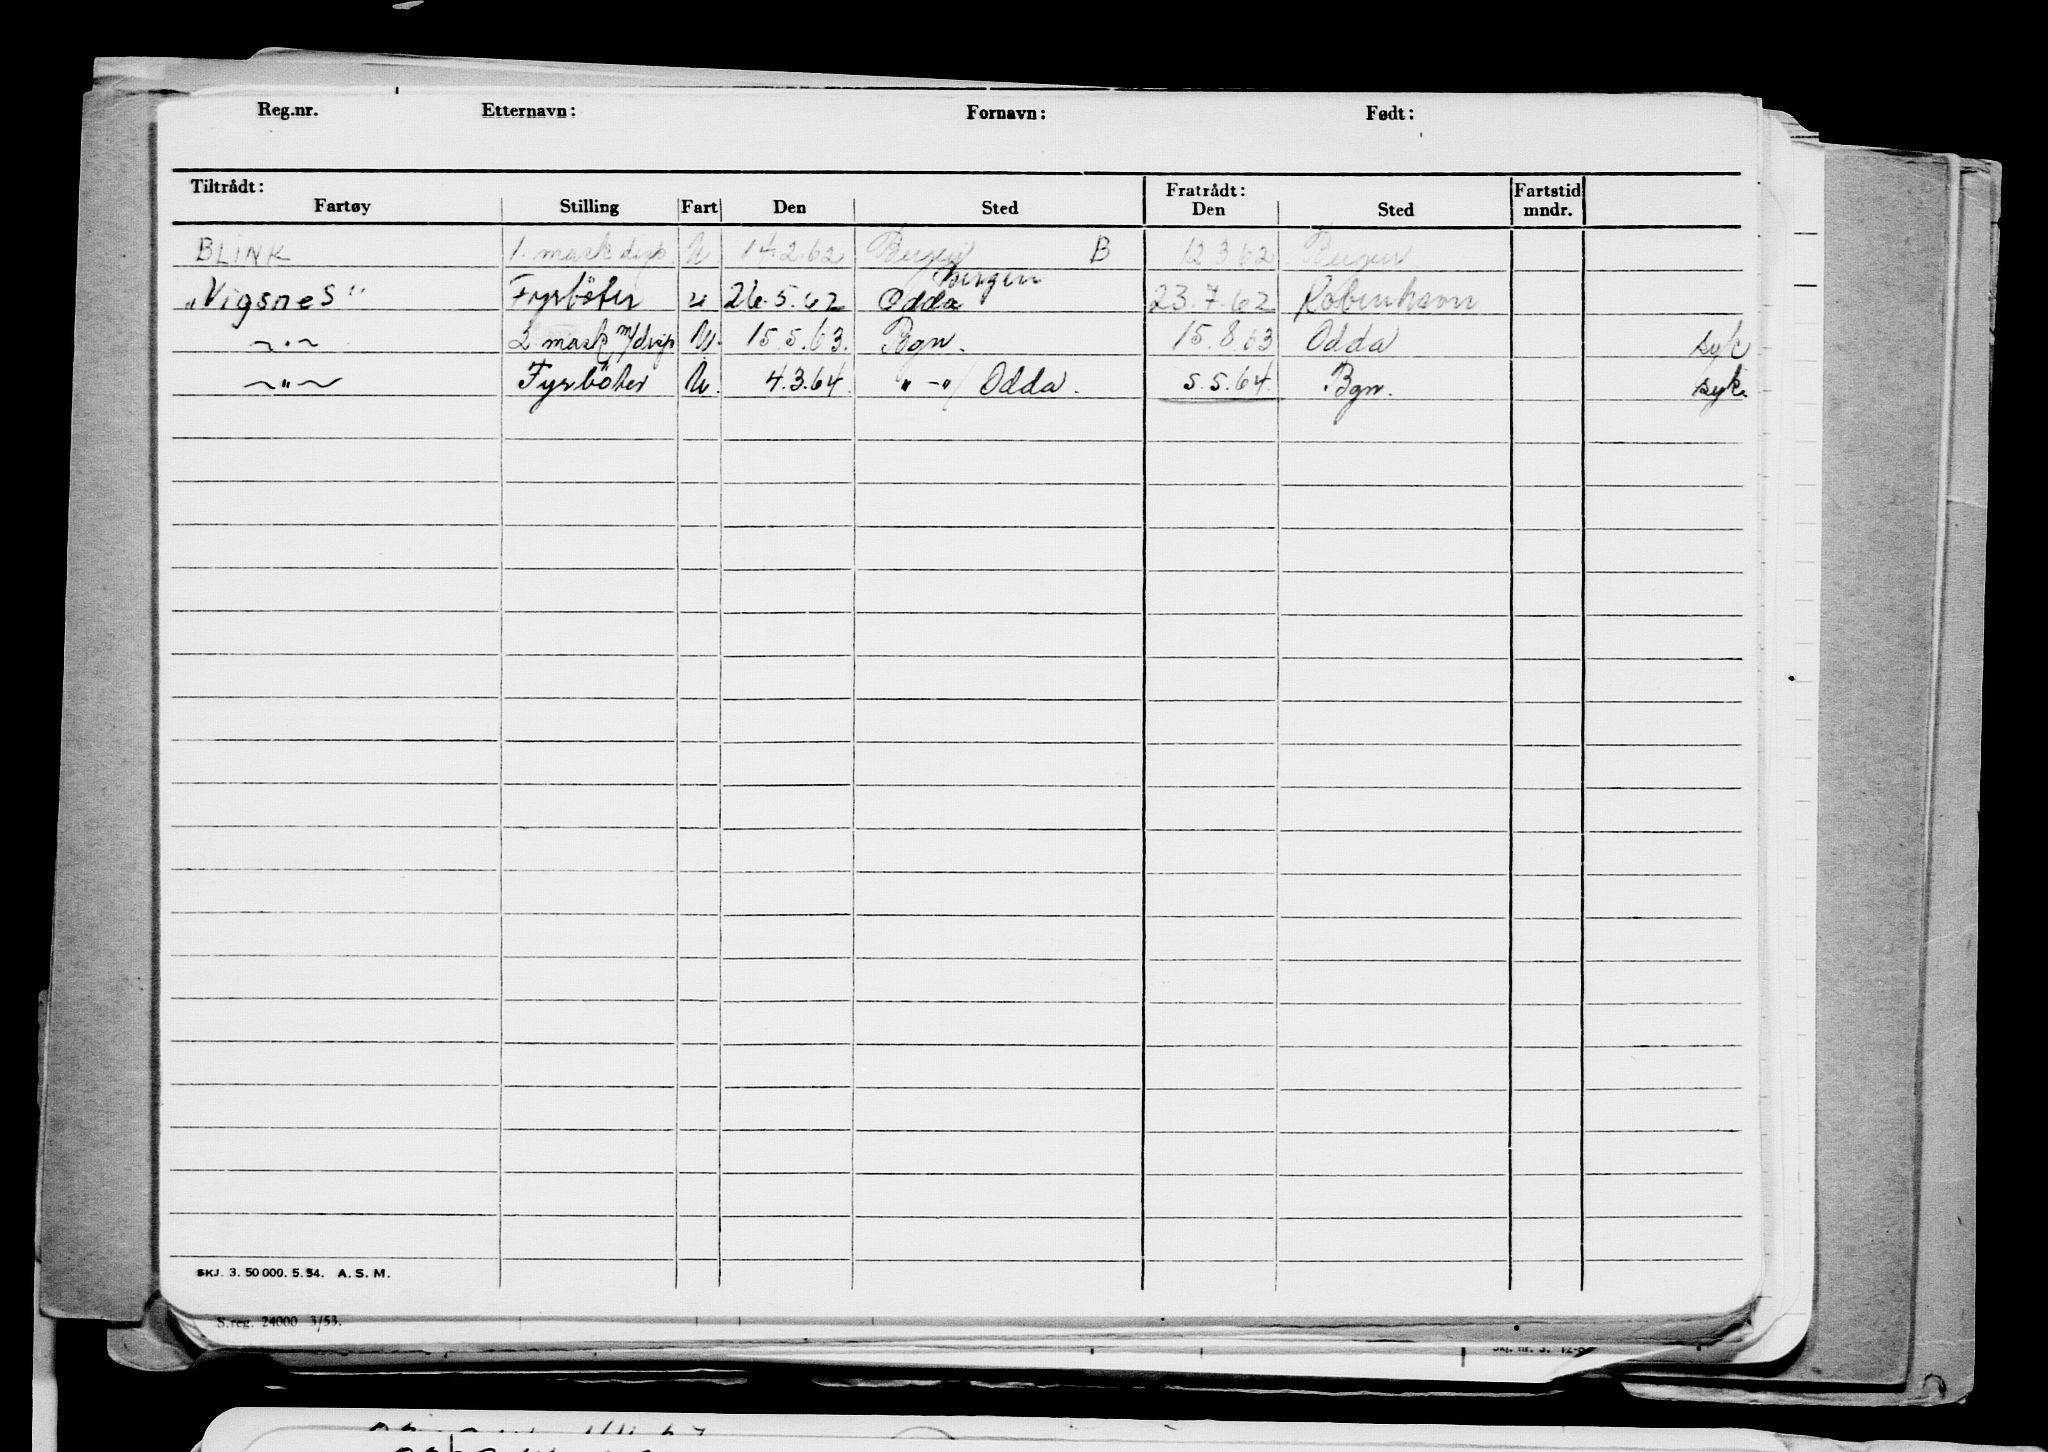 Reg.nr. Etternavn: Fornavn: Født:
Tiltrådt: Fratrådt: Fartstid
Fartøy Stilling Fart Den Sted Den Sted mndr.
BLINK 1. mask disp. U 14.2.62 Bergen B 12.3.62 Bergen
Bergen
"Vigsnes" Fyrböter u 26.5.62 Odda 23.7.62 København
~"~ 2 mask m/disp U. 15.5.63. Bgn. 15.8.63 Odda syk
~"~ Fyrböter U. 4.3.64. " -"/ Odda. 5.5.64 Bgn. syk.
SKJ. 3. 50 000. 5. 54. A. S. M.
S.reg. 24000 3/53.